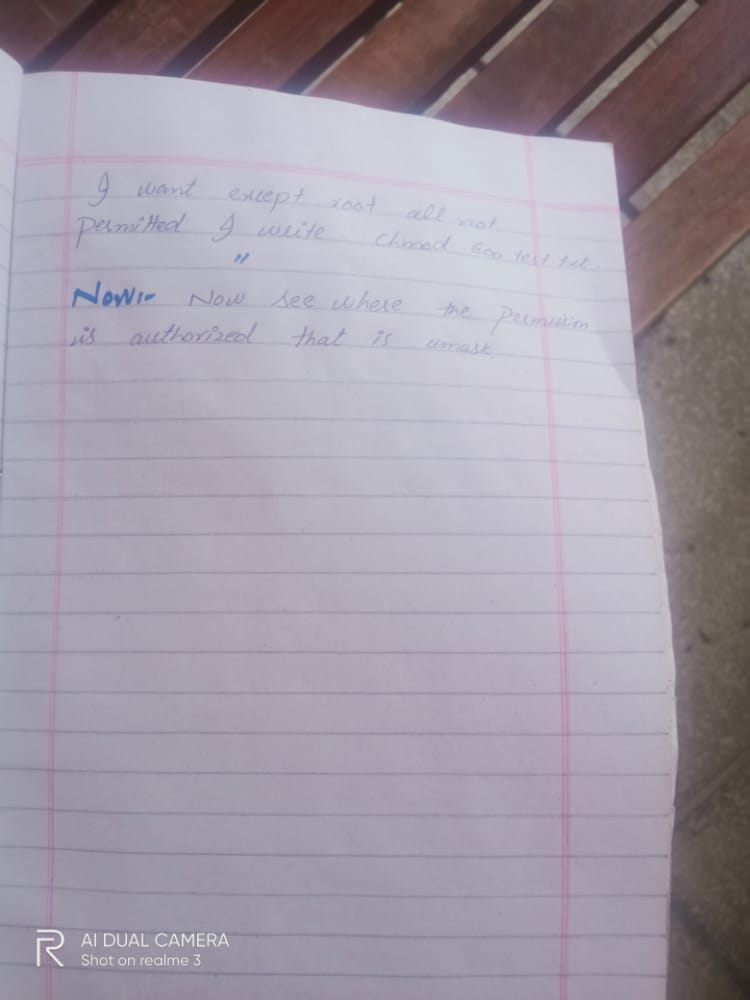 I want except root all not
permitted I write chmod 600 test.txt.
"
Now:- Now see where the permission
is authorized that is umask.
AI DUAL CAMERA
Shot on realme 3